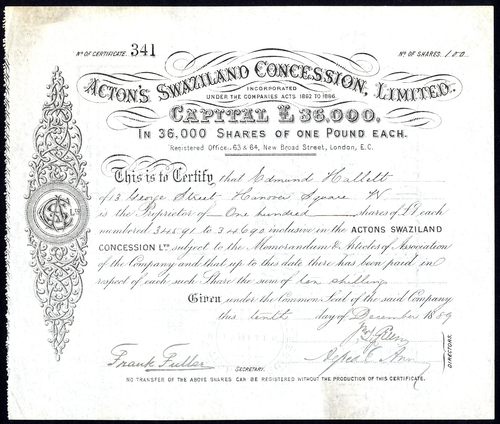 No OF CERTIFICATE. 341
No OF SHARES. 100.
ACTON'S SWAZILAND CONCESSION, LIMITED.
INCORPORATED
UNDER THE COMPANIES ACTS 1862 TO 1886.
CAPITAL £ 36,000.
IN 36,000 SHARES OF ONE POUND EACH.
Registered Office: 63 & 64, New Broad Street, London, E.C.
This is to Certify that Edmund Hallett
of 13 George Street Hanover Square W
is the Proprietor of One hundred shares of £1 each
numbered 34591 to 34690 inclusive in the ACTONS SWAZILAND
CONCESSION LTD subject to the Memorandum & Articles of Association
of the Company and that up to this date there has been paid in
respect of each such Share the sum of ten shillings
Given under the Common Seal of the said Company
this tenth day of December 1889
Frank Fuller
SECRETARY.
DIRECTORS.
NO TRANSFER OF THE ABOVE SHARES CAN BE REGISTERED WITHOUT THE PRODUCTION OF THIS CERTIFICATE.